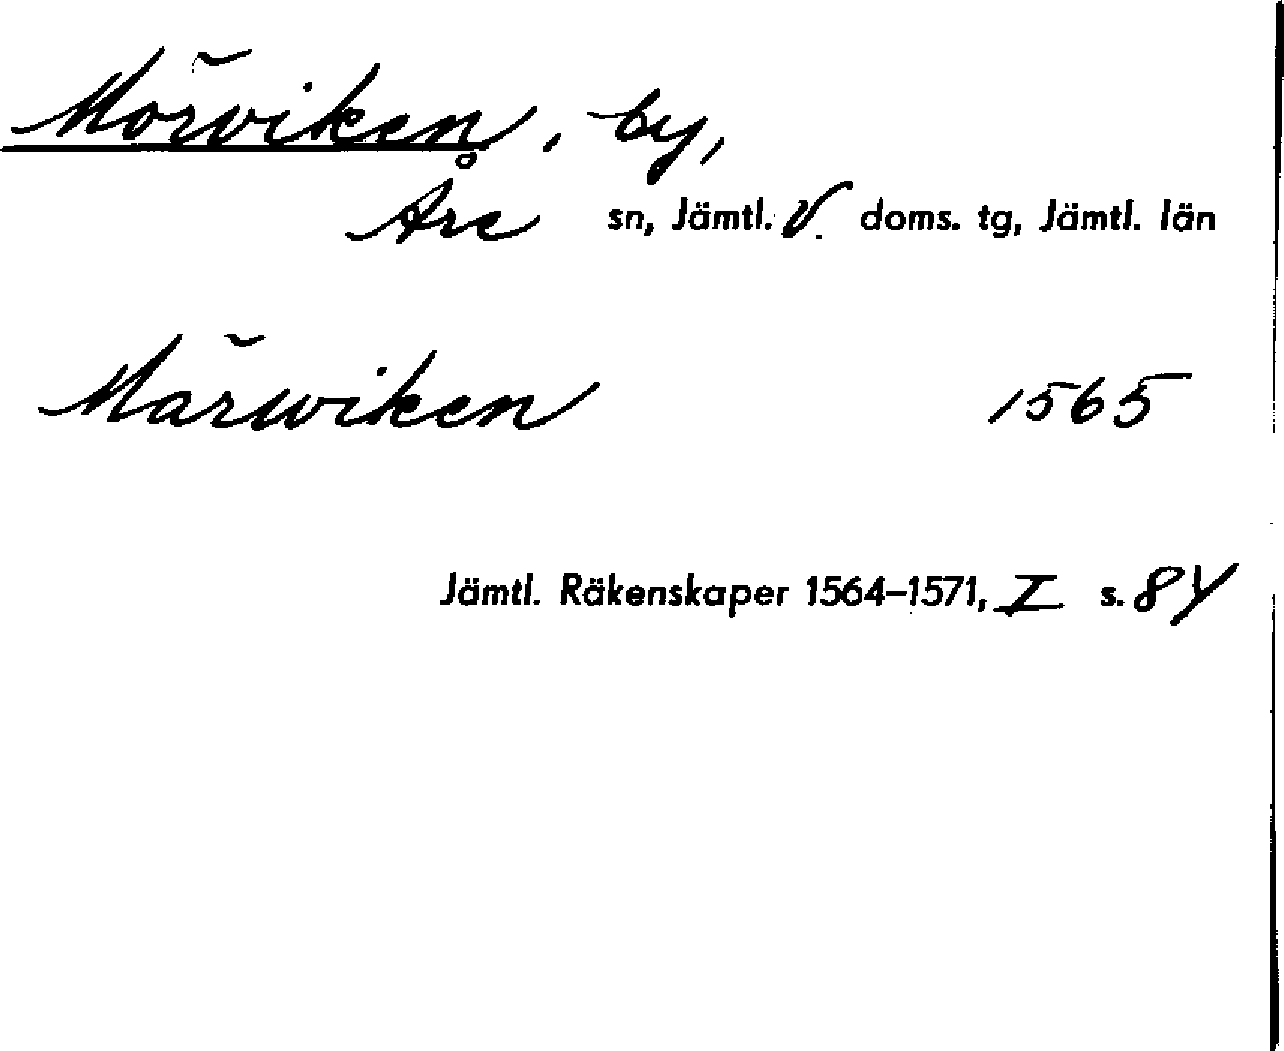 Mörviken, by,
Åre sn, Jämtl. V. doms. tg, Jämtl. län
Märwiken 1565
Jämtl. Räkenskaper 1564–1571, I s. 84